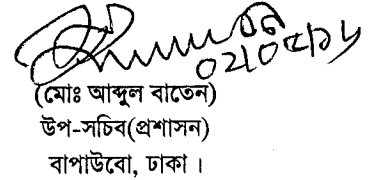 ০২/০৫/১৬
(মোঃ আব্দুল বাতেন)
উপ-সচিব(প্রশাসন)
বাপাউবো, ঢাকা ।